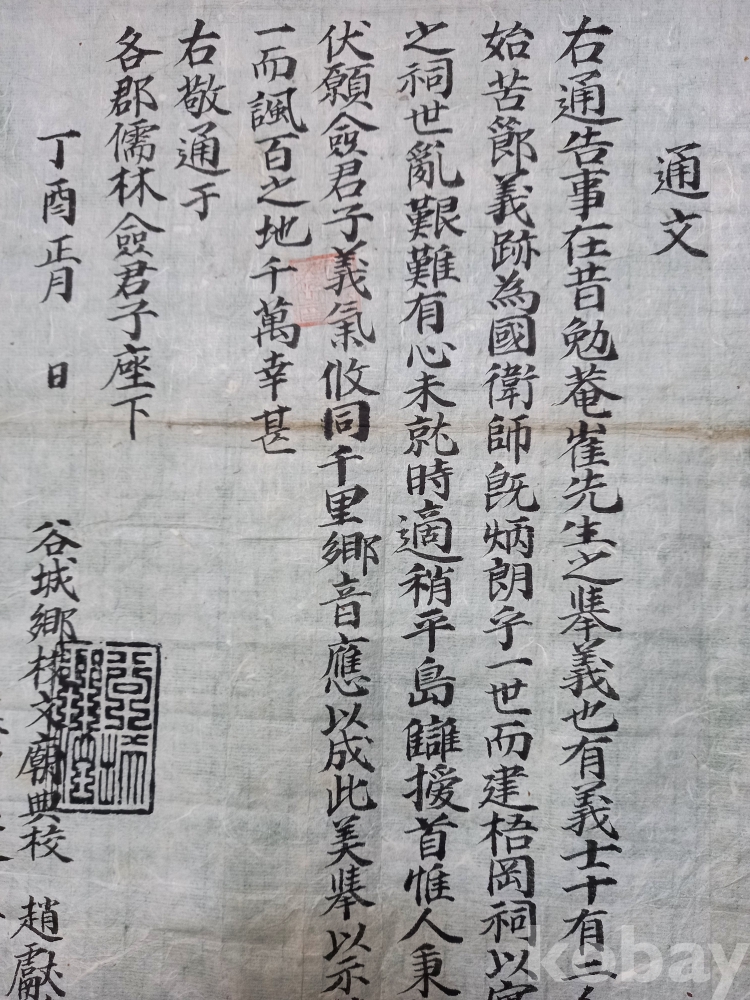 通文
右通告事在昔勉菴崔先生之擧義也有義士十有二人
始苦節義跡為國衛師旣炳朗乎一世而建梧岡祠以
之祠世亂艱難有心未就時適稍平島讎授首惟人秉
伏願僉君子義氣攸同千里鄉音應以成此美擧以示
一而諷百之地千萬幸甚
右敬通于
各郡儒林僉君子座下
丁酉正月 日
谷城鄉校文廟典校 趙
kobay